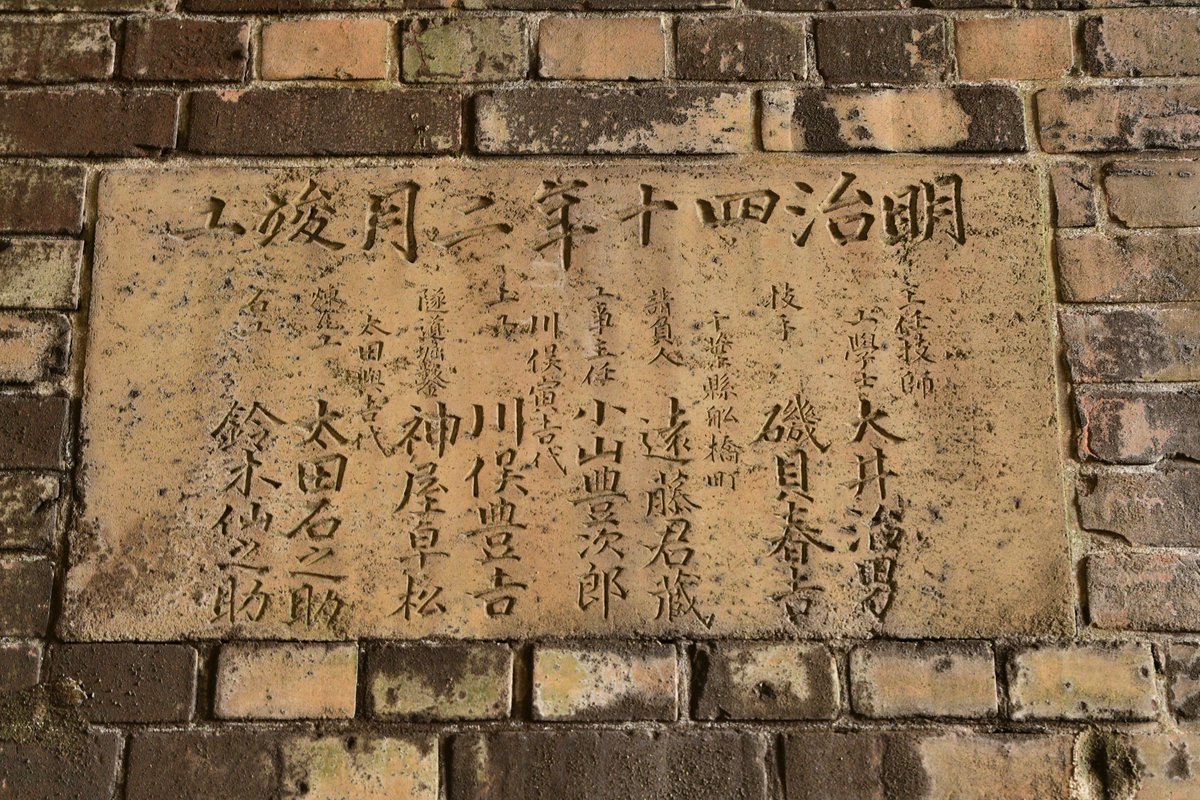 明治四十年二月竣工
主任技師
工學士 大井治男
技手 磯貝春吉
千葉縣船橋町
請負人 遠藤君藏
工事主任 小山豊次郎
川俣寅吉代
土工 川俣豊吉
隧道堀鑿 神屋卓松
太田與吉代
煉瓦工 太田石之助
石工 鈴木仙之助